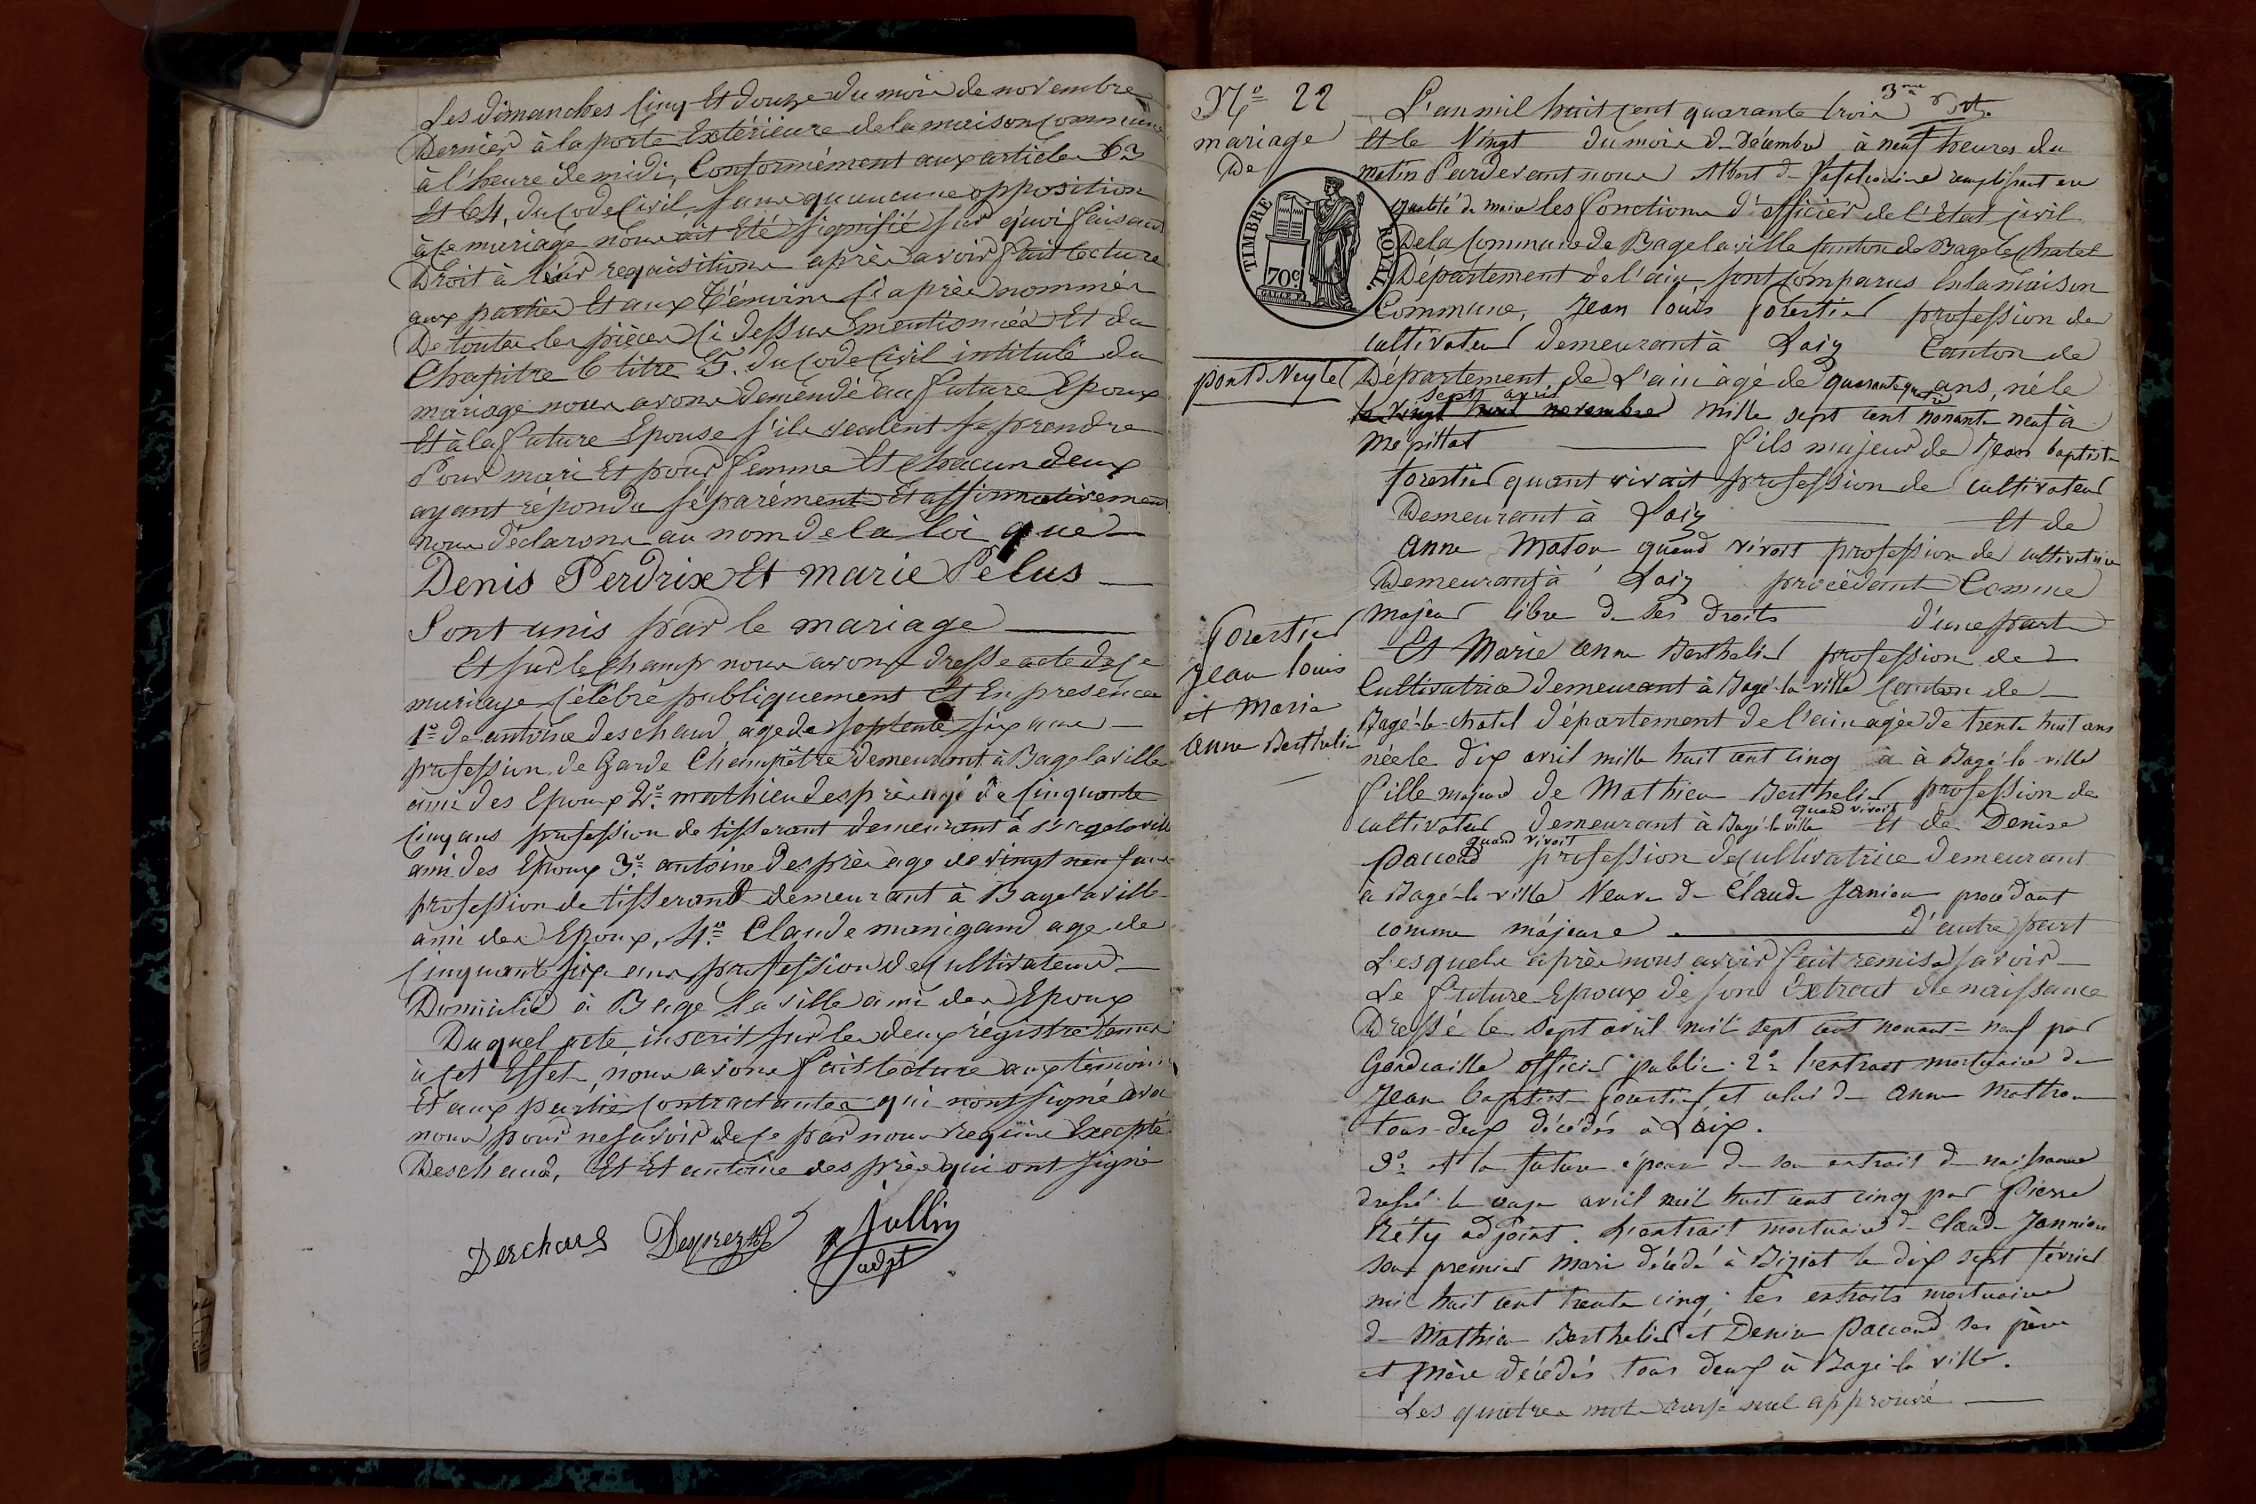 Les dimanches Cinq Et douze du mois de novembre
Dernier à la porte Extérieure de la maison Commune
à l'heure de midi, Conformément aux articles 63
Et 64, du Code Civil, sans qu'aucune opposition
à ce mariage nous ait Eté signifié sur quoi faisant
Droit à leur requisitions après avoir fait lecture
aux parties Et aux témoins Ci après nommés
De toutes les pièces Ci dessus mentionnés Et du
Chapitre 6 titre 5. du Code Civil intitulé du
mariage nous avons demendé au future Epoux
Et à la future Epouse s'ils veulent se prendre
Pour mari Et pour femme Et Chacun deux
ayant répondu séparément Et affirmativement
nous déclarons au nom de la loi que
Denis Perdrix Et marie Pelus
Sont unis par le mariage
Et sur le champ nous avons dressé acte de ce
mariage célébré publiquement Et En presence
1º De antoine deschaud agé de soptente six ans
profession de Garde Champêtre demeurant à Bagelaville
ami des Epoux 2º mathieu després agé de Cinquante
Cinq ans profession de tisserant demeurant à Bagelaville
ami des Epoux 3º antoine després age de vingt neuf ans
profession de tisserand demeurant à Bagelaville
ami des Epoux, 4º Claude manigand age de
Cinquante six ans profession de Cultivateur
Domicilié à Bage la ville ami des Epoux
Duquel acte inscrit sur les deux régistre tenus
à cet Effet, nous avons fait lecture aux témoins
Et aux parties Contractantes qui nont signé avec
nous pour ne savoir de ce par nous requis Excepté
Deschaud, Et Et antoine després qui ont signé
Deschaud Desprez Jullin
adjt
Nº 22
mariage
De
TIMBRE ROYAL
70c
pont d Veyle
Forestier
Jean louis
et Marie
anne Berthelier
3me
L'an mil huit Cent quarante trois
Et le Vingt du mois de Décembre à neuf heures du
matin Pardevant nous Albert de remplissant en
qualité de maire les fonctions d'officier de l'état civil
De la Commune de Bagelaville Canton de Bagelechatel
Département de l'ain, sont Comparus En la maison
Commune, Jean louis forestier profession de
Cultivateur demeurant à Laiz Canton de
Département de L'ain âgé de quarante quatre ans, né le
sept avril
le vingt huit novembre mille sept cent nonante neuf à
Mépillat fils majeur de Jean baptiste
forestier quant vivait profession de cultivateur
Demeurant à Laiz Et de
anne Maton quand vivait profession de cultivatrice
Demeurant à Laiz procédant Comme
majeur libre de ses droits d'une part
Et Marie anne Berthelier profession de
Cultivatrice demeurant à Bagé-la-ville Canton de
Bagé-le-chatel département de l'ain agée de trente huit ans
née le dix avril mille huit cent cinq à à Bagé-la-ville
fille majeur de Mathieu Berthelier profession de
quand vivait
cultivateur demeurant à Bagé-la-ville Et de Denise
quand vivait
Paccoud profession de cultivatrice demeurant
a Bagé-la-ville Veuve de Claude Janion procédant
comme majeure d'autre part
Lesquels après nous avoir fait remise savoir
Le future Epoux de son Extrait de naissance
Dressé le sept avril mil sept cent nonante-neuf par
officier public. 2º l'extrait mortuaire de
Jean baptiste forestier et celui de anne Mathon
tous deux décédés à Laix.
3º et la future épouse de son extrait de naissance
dressé le onze avril mil huit cent cinq par Pierre
Réty adjoint. L'extrait mortuaire de Claude Jannion
son premier mari décédé à Biziat le dix sept février
mil huit cent trente cinq; les extraits mortuaires
de Mathieu Berthelier et Denise Paccoud ses père
et mère décédés tous deux à Bagé-la-ville.
Les quatres mots rayé nul approuvé